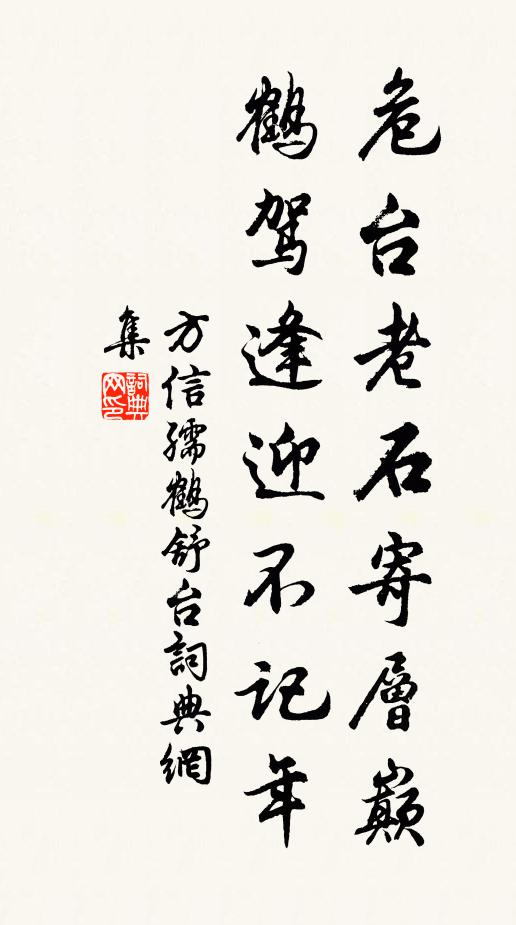 危台老石寄層巔
鶴駕逢迎不記年
方信孺鶴舒台詞典網
集
詞典网印